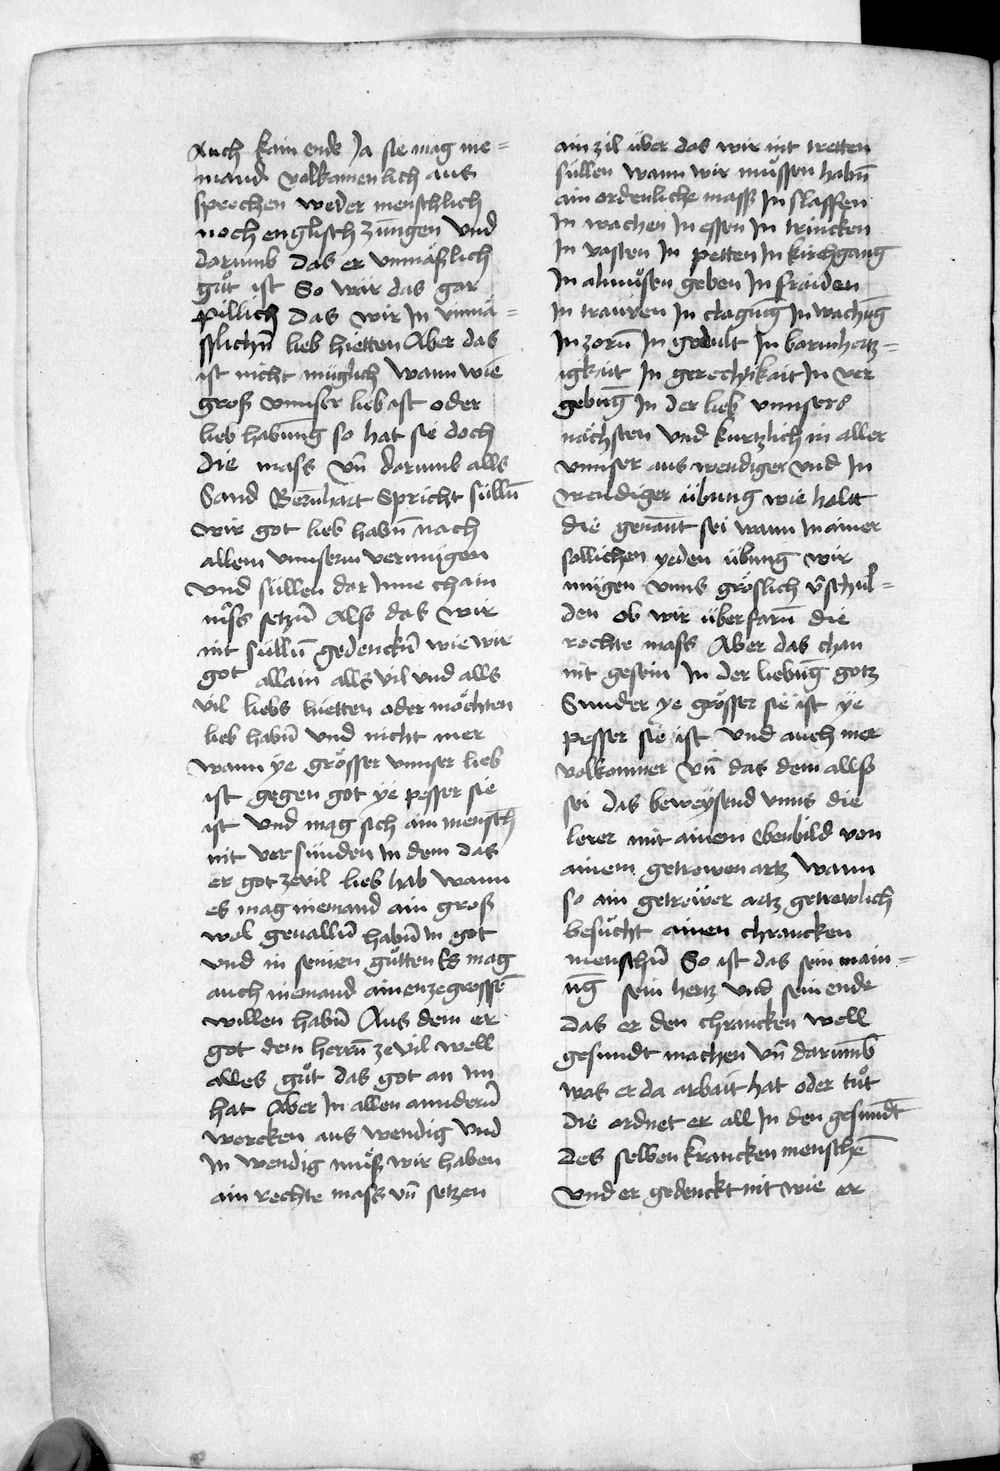 Auch kain ende Ja sie mag nie=
mand volkamenlich aus
sprechen weder menschlich
noch englisch zungen Und
darumb das er vnmäßlich
guͦt ist So wär das gar
pillich das wir In vnmä=
sslichn̄ lieb hietten Aber das
ist nicht müglich Wann wie
groß vnnser lieb ist oder
lieb habung so hat sie doch
die mass vn̄ darumb alls
Sand Bernhart Spricht sülln̄
wir got lieb habn̄ nach
allem vnnserm vermügen
Und süllen dar Inne chain
mͦss setzn̄ Allso das wir
nit sülln̄ gedenckn̄ wie wir
got allain alls vil vnd alls
vil liebs hietten oder möchten
lieb habn̄ vnd nicht mer
Wann ye grösser vnnser lieb
ist gegen got ye pesser sie
ist vnd mag sich ain mensch
nit versünden In dem das
er got zevil lieb hab wann
es mag niemand ain groß
wol geualln̄ habn̄ In got
vnd in seinen guͦtten Es mag
auch niemand ain enzegrossē
willen habn̄ Aus dem er
got dem herrn̄ zevil well
alles guͦt das got an im
hat Aber In allen anndern̄
wercken aus wendig vnd
In wendig muͦß wir haben
ain rechte mass vn̄ setzen
ain zil über das wir nit tretten
süllen wann wir muͦssen habn̄
ain ordenliche mass In slaffen
In wachen In essen In trincken
In vasten In petten In kirchgang
In almuͦsen geben In fraiden
In trauren In clagūg In wachūg
In zorn̄ In gedult In barmhertz=
igkait In gerechtikait In ver
gebūg In der lieb vnnsers
nächsten vnd kurtzlich in aller
vnnser aus wendiger vnd In
wendiger übung wie halt
die genannt sei wann In ainer
sollichen yeden übung wir
mügen vnns gröslich v̄schul=
den ob wir überfarn̄ die
rechte mass Aber das chan
nit gesein In der liebūg gotz
Sunder ye grösser sie ist ye
pesser sie ist vnd auch mer
volkommer vn̄ das dem allso
sei das beweysend vnns die
lerer mit ainem Ebenbild von
ainem getrewen artz Wann
so ain getrewer artz getrewlich
besuͦcht ainen chrancken
menschn̄ So ist das sein main=
ūg sein hertz vnd sein ende
das er den chrancken well
gesundt machen vn̄ darumb
was er da arbait hat oder tuͦt
die ordnet er all In den gesundt
des selben krancken menschē
Und er gedenckt nit wie er